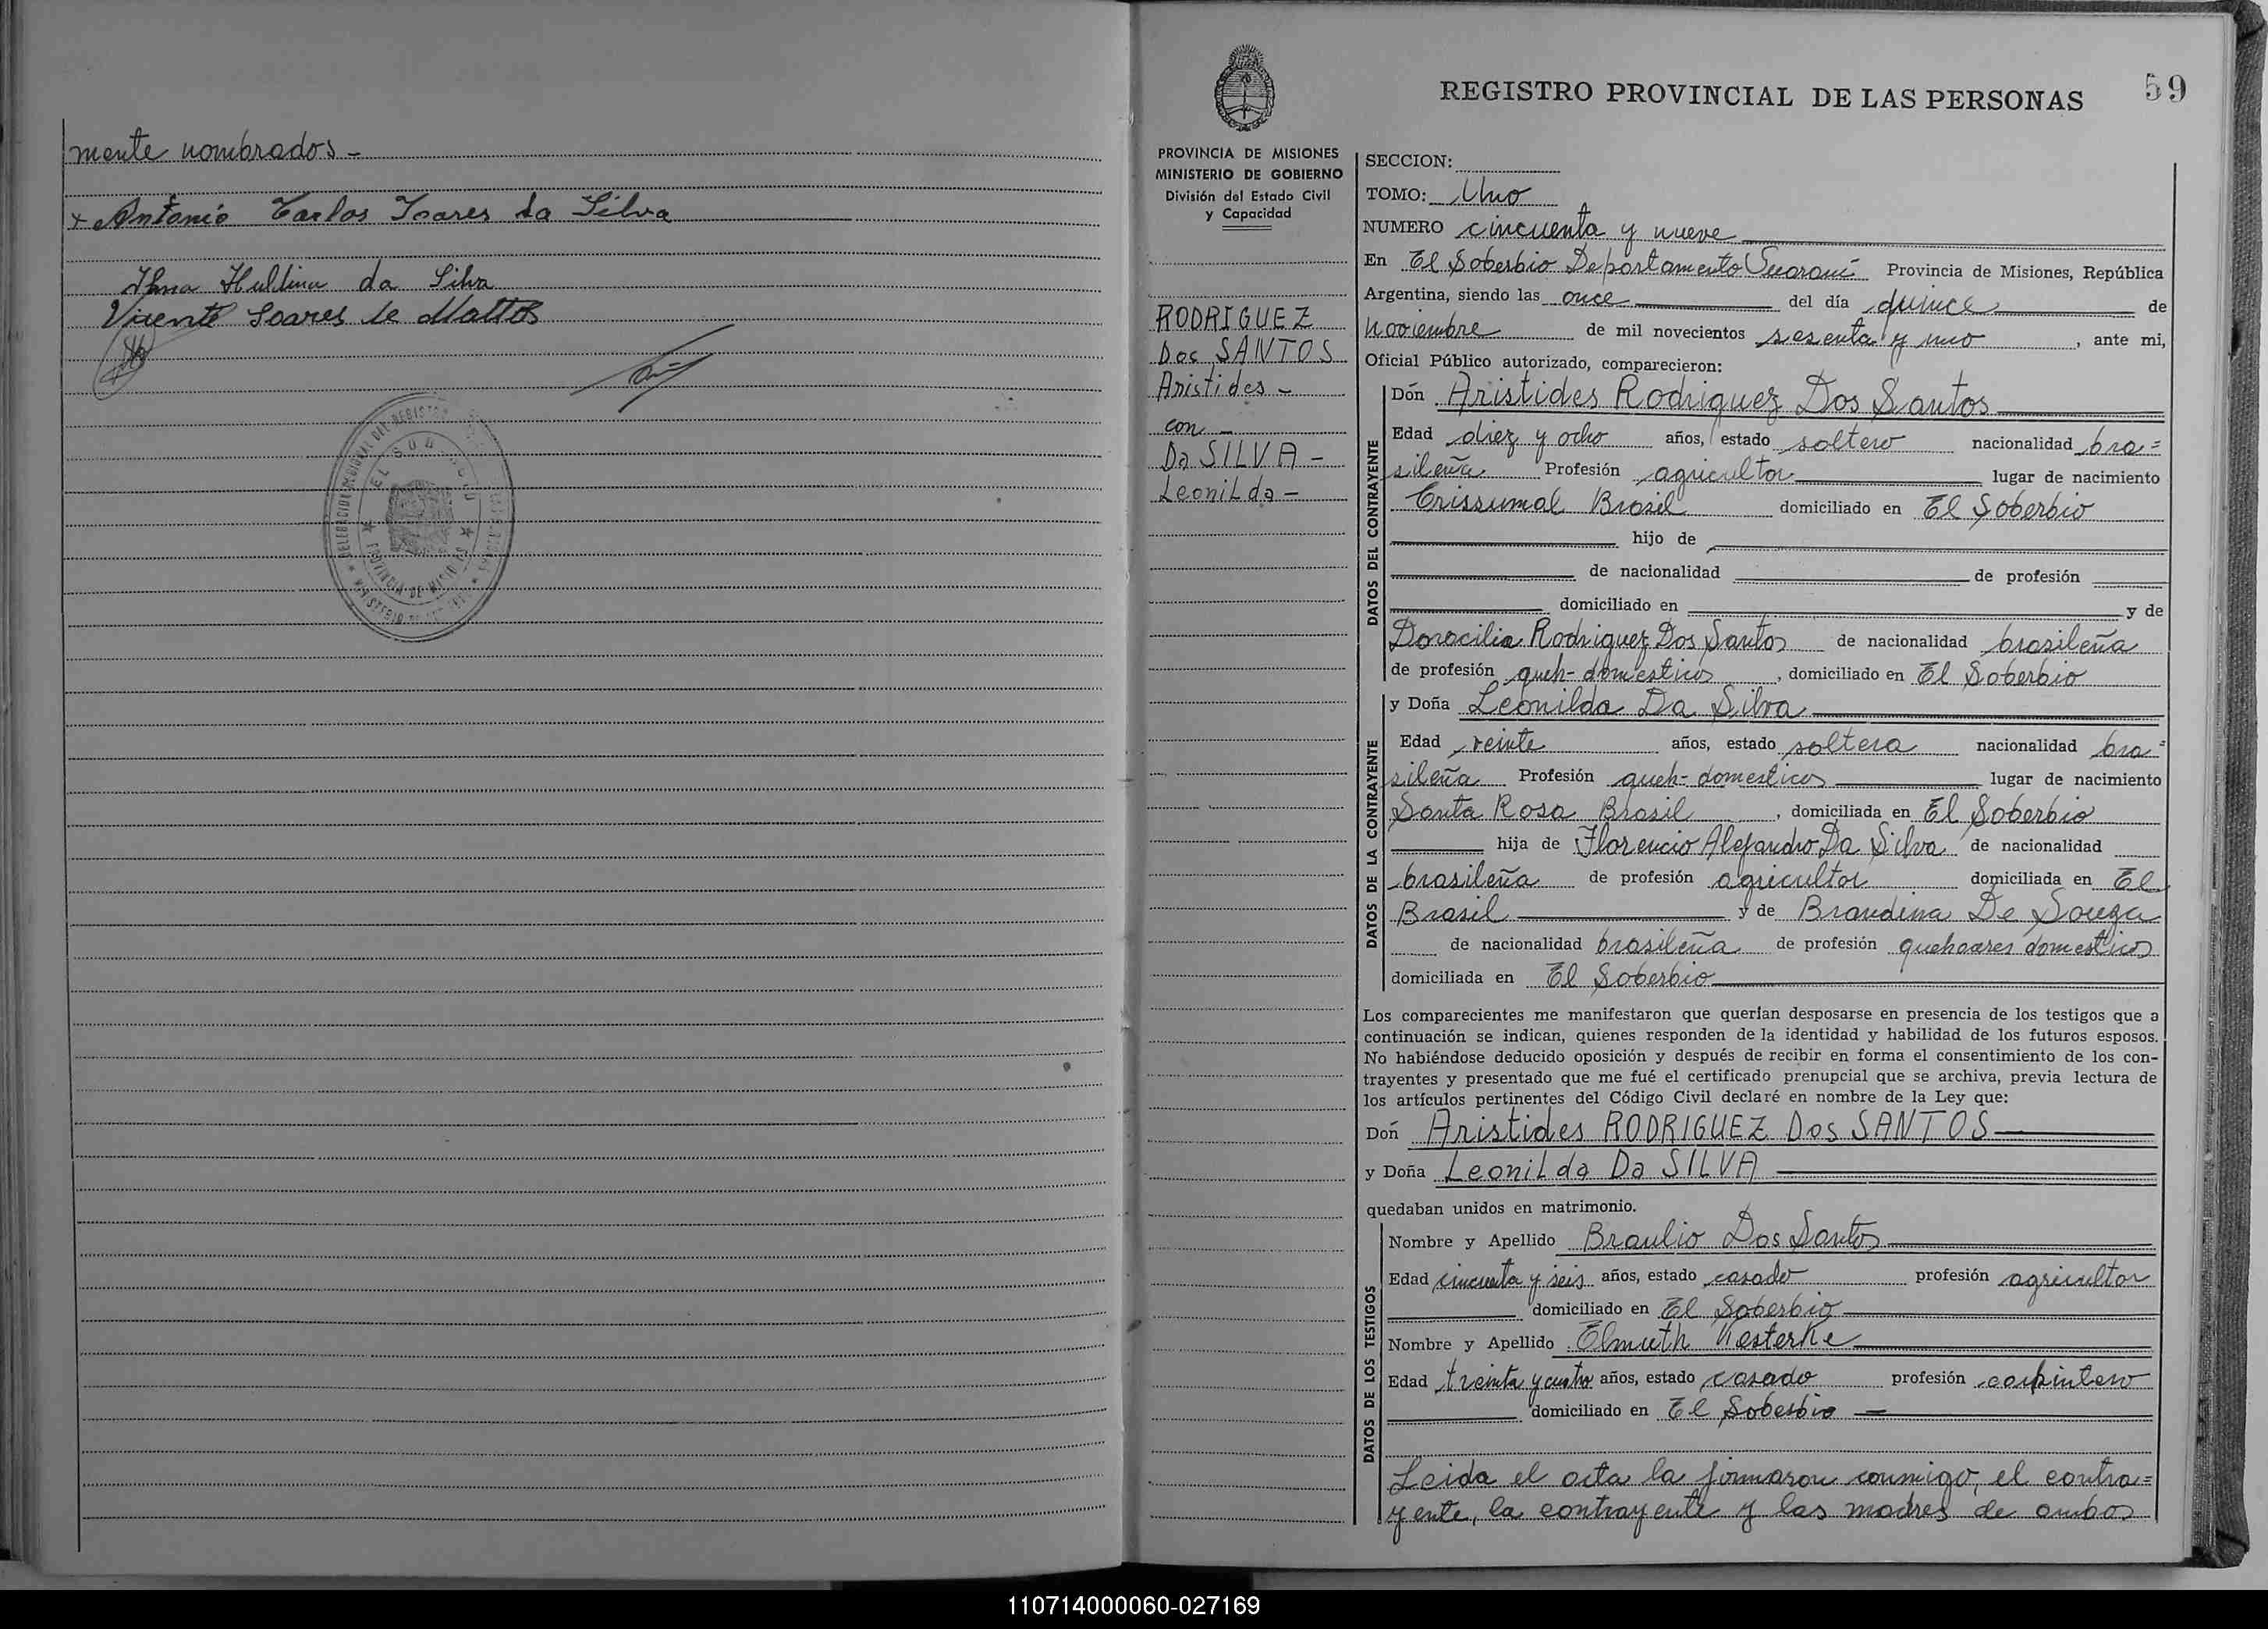 mente nombrados -
x Antonio Carlos Soares da Silva
da Silva
Vicente Soares de Mattos
EL SOBERBIO
PROVINCIA DE MISIONES
59
REGISTRO PROVINCIAL DE LAS PERSONAS
PROVINCIA DE MISIONES
MINISTERIO DE GOBIERNO
División del Estado Civil
y Capacidad
RODRIGUEZ
Dos SANTOS
Aristides -
con -
Da SILVA -
LeoniLda -
SECCION:
TOMO: Uno
NUMERO cincuenta y nueve
En El Soberbio Departamento Guaraní Provincia de Misiones, República
Argentina, siendo las once del día quince de
noviembre de mil novecientos sesenta y uno, ante mi,
Oficial Público autorizado, comparecieron:
DATOS DEL CONTRAYENTE
Dón Aristides Rodriguez Dos Santos
Edad diez y ocho años, estado soltero nacionalidad bra=
sileña Profesión agricultor lugar de nacimiento
Crissumal Brasil domiciliado en El Soberbio
hijo de
de nacionalidad de profesión
domiciliado en y de
Doracilia Rodriguez Dos Santos de nacionalidad brasileña
de profesión queh- domesticos, domiciliado en El Soberbio
DATOS DE LA CONTRAYENTE
y Doña Leonilda Da Silva
Edad veinte años, estado soltera nacionalidad bra=
sileña Profesión queh- domesticos lugar de nacimiento
Santa Rosa Brasil, domiciliada en El Soberbio
hija de Florencio Alejandro Da Silva de nacionalidad
brasileña de profesión agricultor domiciliada en El
Brasil y de Brandina De Souza
de nacionalidad brasileña de profesión quehaceres domesticos
domiciliada en El Soberbio
Los comparecientes me manifestaron que querían desposarse en presencia de los testigos que a
continuación se indican, quienes responden de la identidad y habilidad de los futuros esposos.
No habiéndose deducido oposición y después de recibir en forma el consentimiento de los con-
trayentes y presentado que me fué el certificado prenupcial que se archiva, previa lectura de
los artículos pertinentes del Código Civil declaré en nombre de la Ley que:
Doń Aristides RODRIGUEZ Dos SANTOS
y Doña LeoniLda Da SILVA
quedaban unidos en matrimonio.
DATOS DE LOS TESTIGOS
Nombre y Apellido Braulio Dos Santos
Edad cincuenta y seis años, estado casado profesión agricultor
domiciliado en El Soberbio
Nombre y Apellido Elmuth Kesterke
Edad treinta y cuatro años, estado casado profesión carpintero
domiciliado en El Soberbio
Leida el acta la firmaron conmigo, el contra=
yente, la contrayente y las madres de ambos
110714000060-027169